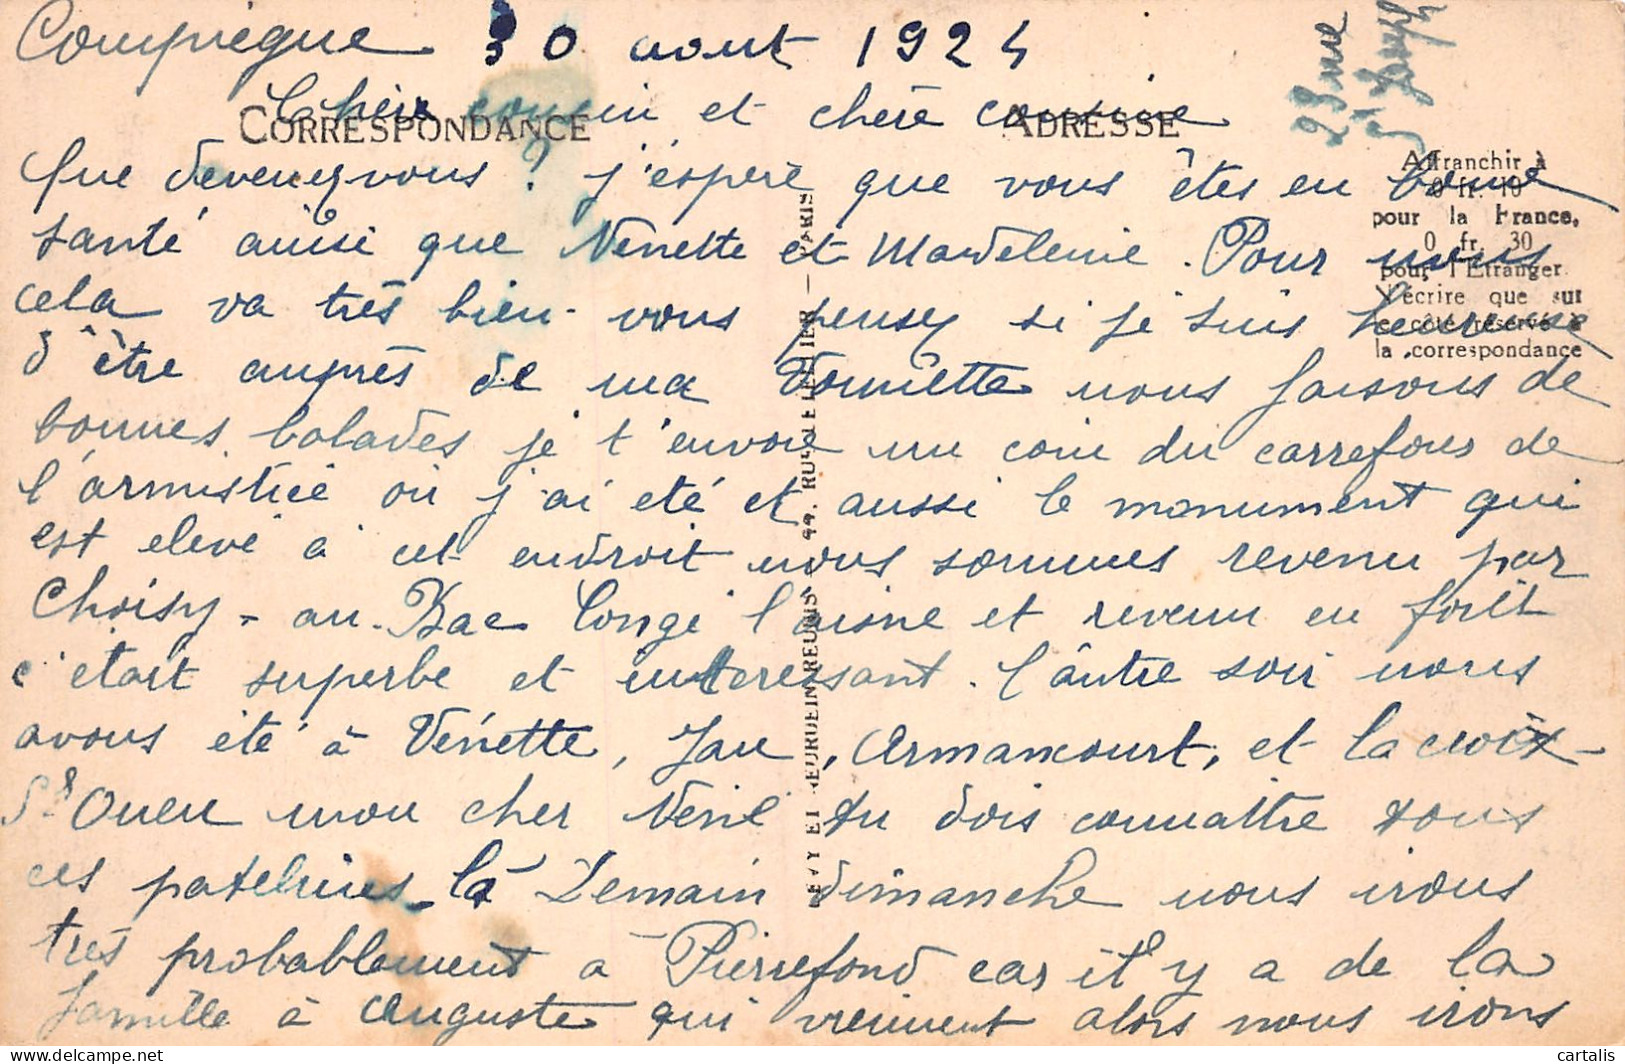 Compiègne 30 aout 1924
Cher cousin et chère cousine
CORRESPONDANCE
ADRESSE
Que devenez vous ? j'espère que vous êtes en bonne
santé ainsi que Nénette et Madeleine. Pour nous
cela va très bien - vous pensez si je suis heureuse
d'être auprès de ma nous faisons de
bonnes balades je t'envoie un coin du carrefour de
l'armistice où j'ai été et aussi le monument qui
est elevé à cet endroit nous sommes revenu par
Choisy - au - Bac longé l'aisne et revenu en forêt
c'était superbe et interessant. l'autre soir nous
avons été à Vénette, Jau, Armancourt, et la croix-
St Ouen mon cher tu dois connaitre tous
ces patelins - là Demain dimanche nous irons
très probablement à Pierrefond car il y a de la
famille à Auguste qui viennent alors nous irons
Affranchir à
0 fr. 10
pour la France,
0 fr. 30
pour l'Etranger
N'écrire que sur
le côté réservé à
la correspondance
LEVY ET NEURDEIN REUNIS 44, RUE LETELLIER — PARIS
cartalis